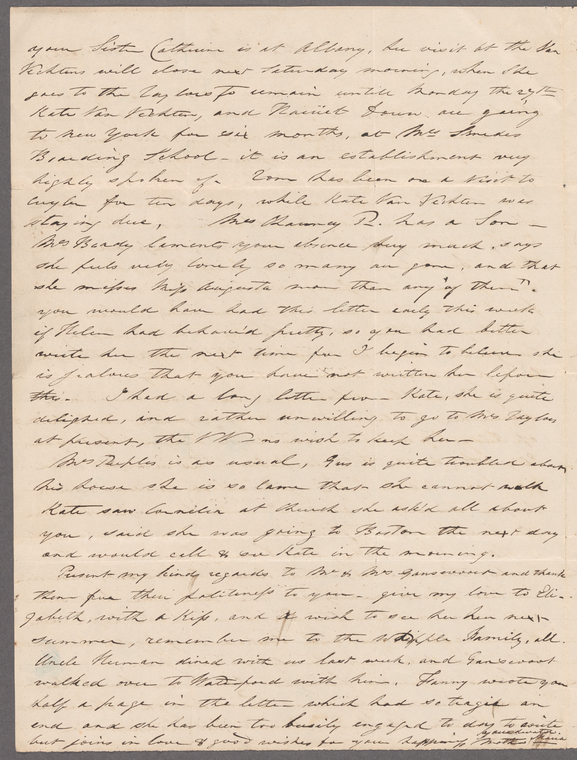 your Sister Catherine is at Albany, her visit at the Van
Vechtens will close next Saturday morning, when She
goes to the Taylors to remain untill Monday the 27th
Kate Van Vechten, and Harriet Down are going
to New York for six months, at Mrs Smedes
Boarding School - it is an establishment very
highly spoken of. Tom has been on a visit to
for ten days, while Kate Van Vechten was
staying here, Mrs Chauncy P. has a Son -
Mrs Beady laments your absence very much, says
she feels very lonely so many are gone, and that
she misses Miss Augusta more than any "of them".
you would have had this letter early this week
if Helen had behav'd pretty, so you had better
write her the next time for I begin to believe she
is jealous that you have not written her before
this. I had a long letter from Kate, she is quite
delighted, and rather unwilling to go to Mrs Taylors
at present, the V V ns wish to keep her -
Mrs Peebles is as usual, Gus is quite troubled about
his house she is so lame that she cannot walk
Kate saw Cornelia at Church she ask'd all about
you, said she was going to Boston the next day
and would call & see Kate in the morning.
Present my kind regards to Mr & Mrs Gansevoort and thank
them for their politeness to you - give my love to Eli-
zabeth, with a Kiss, and I wish to see her here next
summer, remember me to the Whipple Family, all.
Uncle Herman dined with us last week, and Gansevoort
walked over to Waterford with him. Fanny wrote you
half a page in the letter which had so tragic an
end and she has been too busily engaged to day to write
but joins in love & good wishes for your happiness
your devoted
Mother Maria